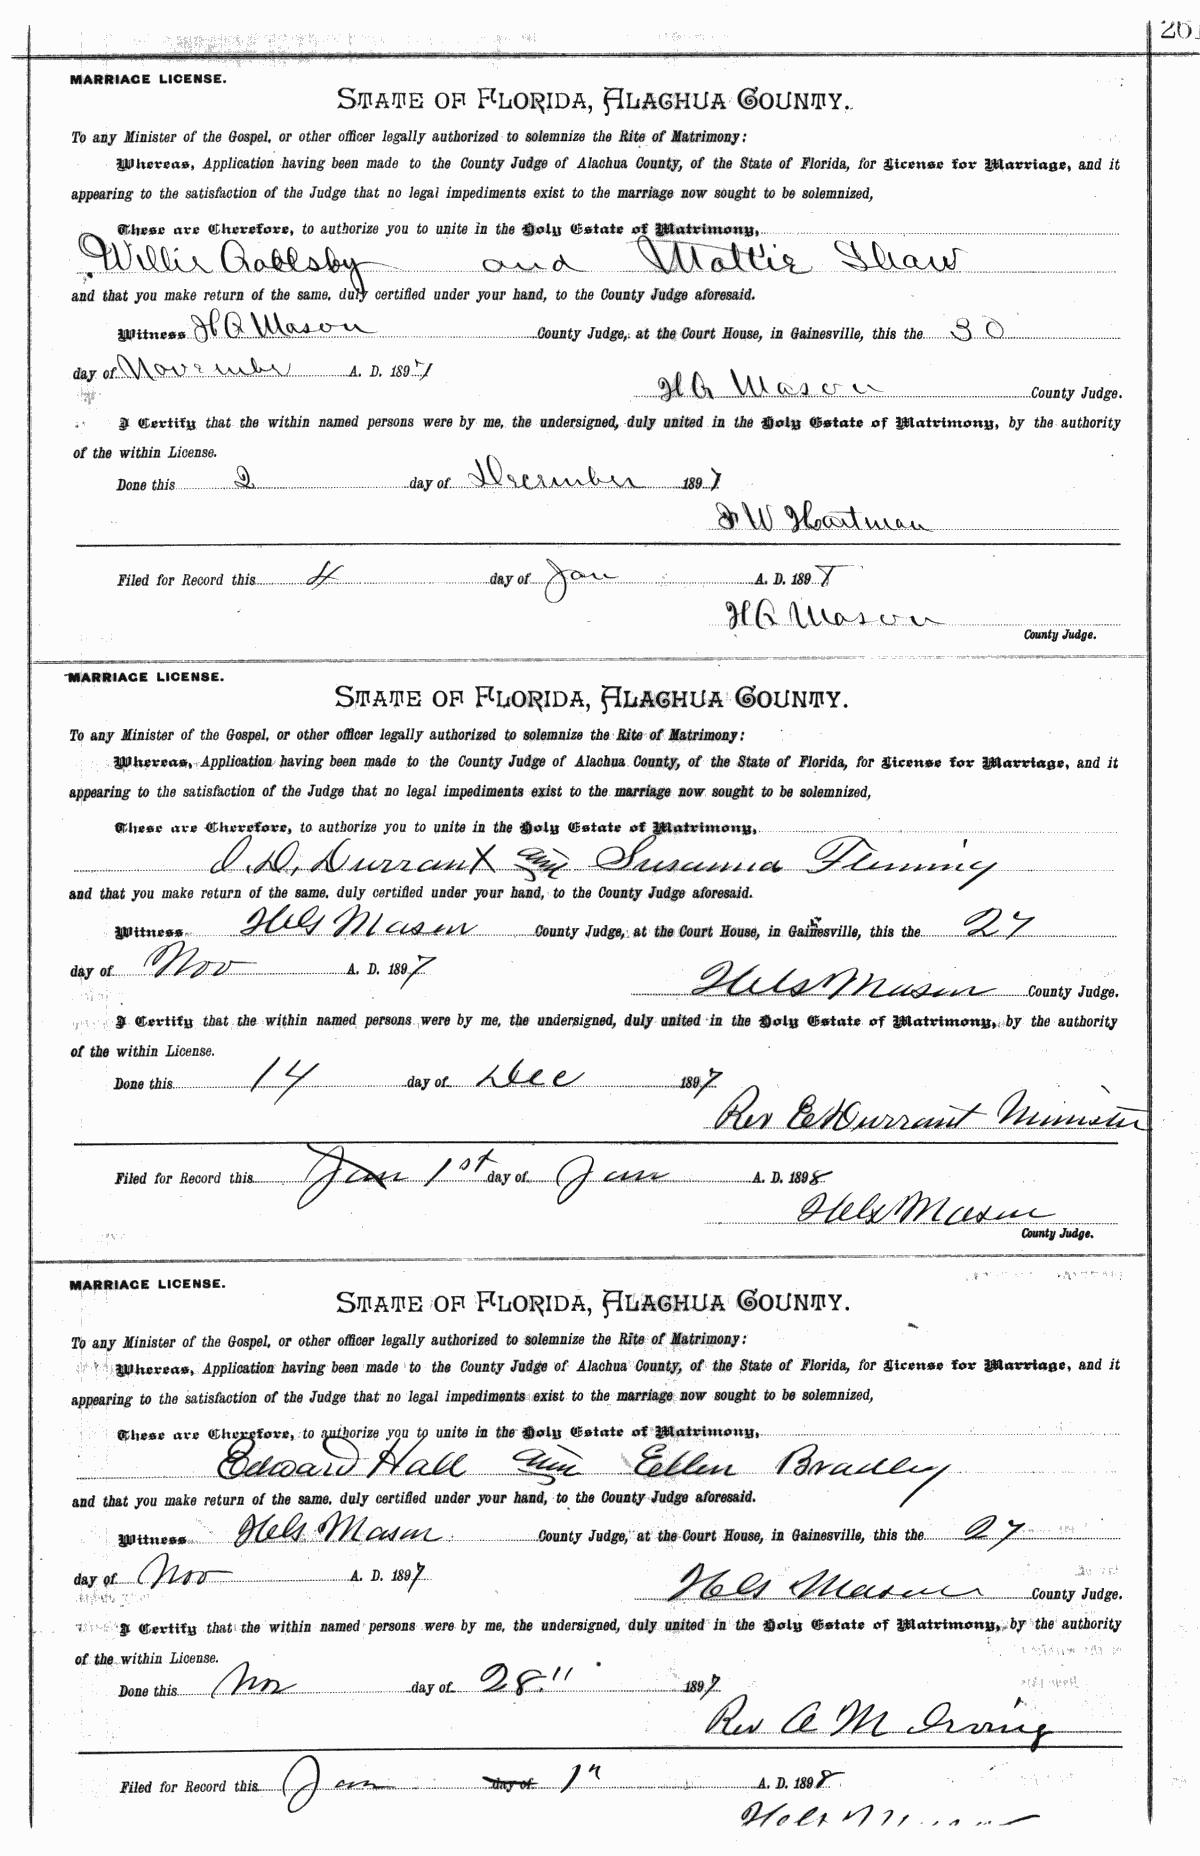 261
MARRIAGE LICENSE.
STATE OF FLORIDA, ALACHUA COUNTY.
To any Minister of the Gospel, or other officer legally authorized to solemnize the Rite of Matrimony:
Whereas, Application having been made to the County Judge of Alachua County, of the State of Florida, for License for Marriage, and it
appearing to the satisfaction of the Judge that no legal impediments exist to the marriage now sought to be solemnized,
These are Therefore, to authorize you to unite in the Holy Estate of Matrimony,
Willie and Mattie Shaw
and that you make return of the same, duly certified under your hand, to the County Judge aforesaid.
Witness H G Mason County Judge, at the Court House, in Gainesville, this the 30
day of November A. D. 1897
H G Mason County Judge.
I Certify that the within named persons were by me, the undersigned, duly united in the Holy Estate of Matrimony, by the authority
of the within License.
Done this 2 day of December 1897
F W Hartman
Filed for Record this 4 day of Jan A. D. 189
H G Mason
County Judge.
MARRIAGE LICENSE.
STATE OF FLORIDA, ALACHUA COUNTY.
To any Minister of the Gospel, or other officer legally authorized to solemnize the Rite of Matrimony:
Whereas, Application having been made to the County Judge of Alachua County, of the State of Florida, for License for Marriage, and it
appearing to the satisfaction of the Judge that no legal impediments exist to the marriage now sought to be solemnized,
These are Therefore, to authorize you to unite in the Holy Estate of Matrimony,
Durrant and Susanna Fleming
and that you make return of the same, duly certified under your hand, to the County Judge aforesaid.
Witness Mason County Judge, at the Court House, in Gainesville, this the 27
day of Nov A. D. 1897
Mason County Judge.
I Certify that the within named persons were by me, the undersigned, duly united in the Holy Estate of Matrimony, by the authority
of the within License.
Done this 14 day of Dec 1897
Rev E Durrant Minister
Filed for Record this Jan 1st day of Jan A. D. 1898
Mason
County Judge.
MARRIAGE LICENSE.
STATE OF FLORIDA, ALACHUA COUNTY.
To any Minister of the Gospel, or other officer legally authorized to solemnize the Rite of Matrimony:
Whereas, Application having been made to the County Judge of Alachua County, of the State of Florida, for License for Marriage, and it
appearing to the satisfaction of the Judge that no legal impediments exist to the marriage now sought to be solemnized,
These are Therefore, to authorize you to unite in the Holy Estate of Matrimony,
Edward Hall and Ellen Bradley
and that you make return of the same, duly certified under your hand, to the County Judge aforesaid.
Witness Mason County Judge, at the Court House, in Gainesville, this the 27
day of Nov A. D. 1897
Mason County Judge.
I Certify that the within named persons were by me, the undersigned, duly united in the Holy Estate of Matrimony, by the authority
of the within License.
Done this Nov day of 28" 1897
Rev A M Irving
Filed for Record this Jan day of 1" A. D. 1898